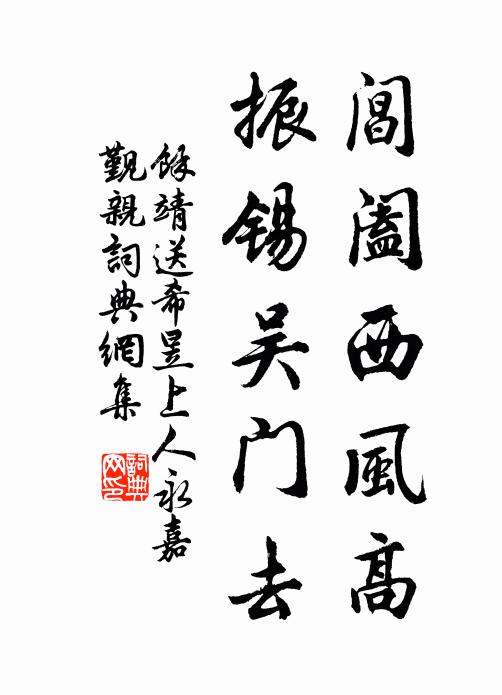 閶闔西風高
振锡吴门去
餘靖送希昱上人永嘉
觐親詞典網集
詞典网印